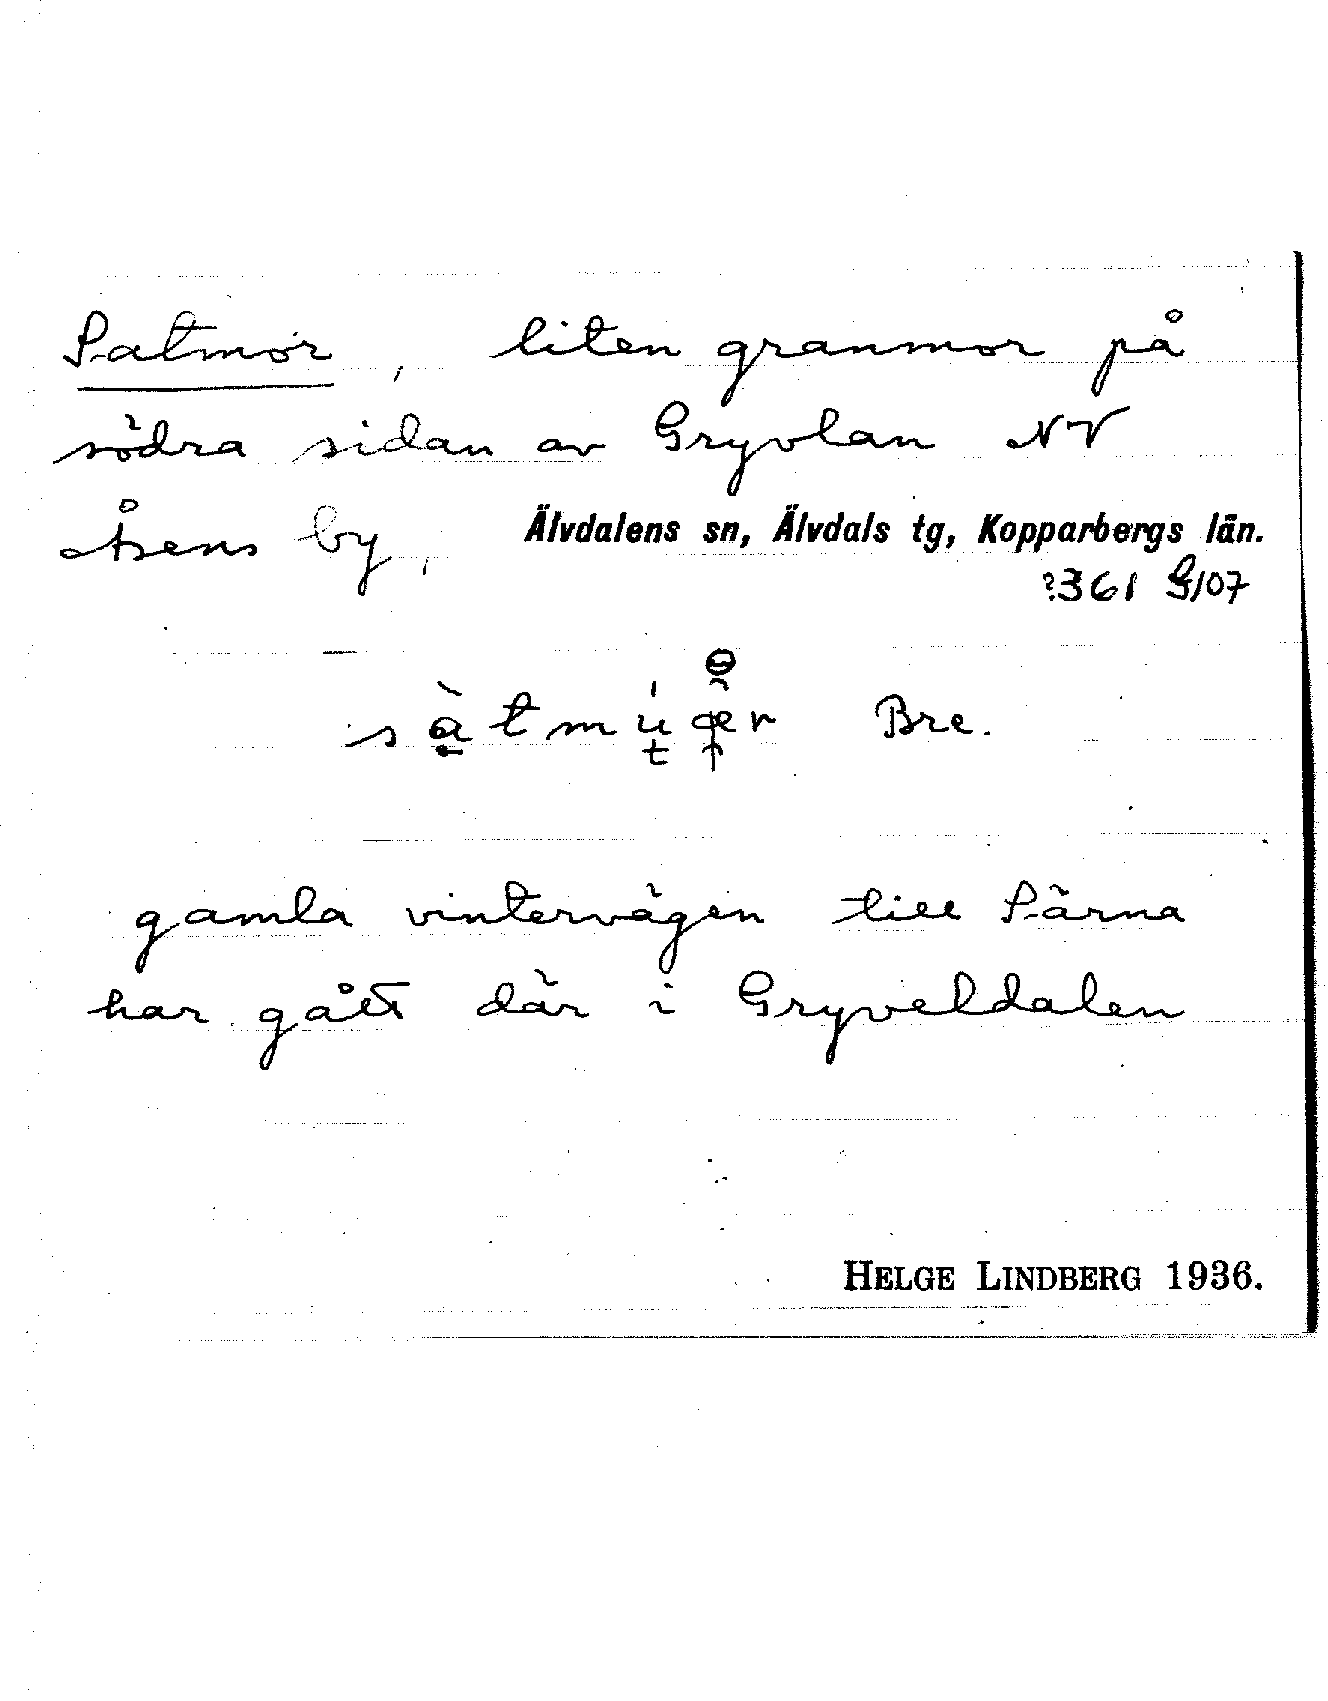 Satmor, liten granmor på
södra sidan av Gryvlan NV
Åsens by,
Älvdalens sn, Älvdals tg, Kopparbergs län.
?361 G/07
Bre.
gamla vintervägen till Särna
har gått där i Gryveldalen
HELGE LINDBERG 1936.